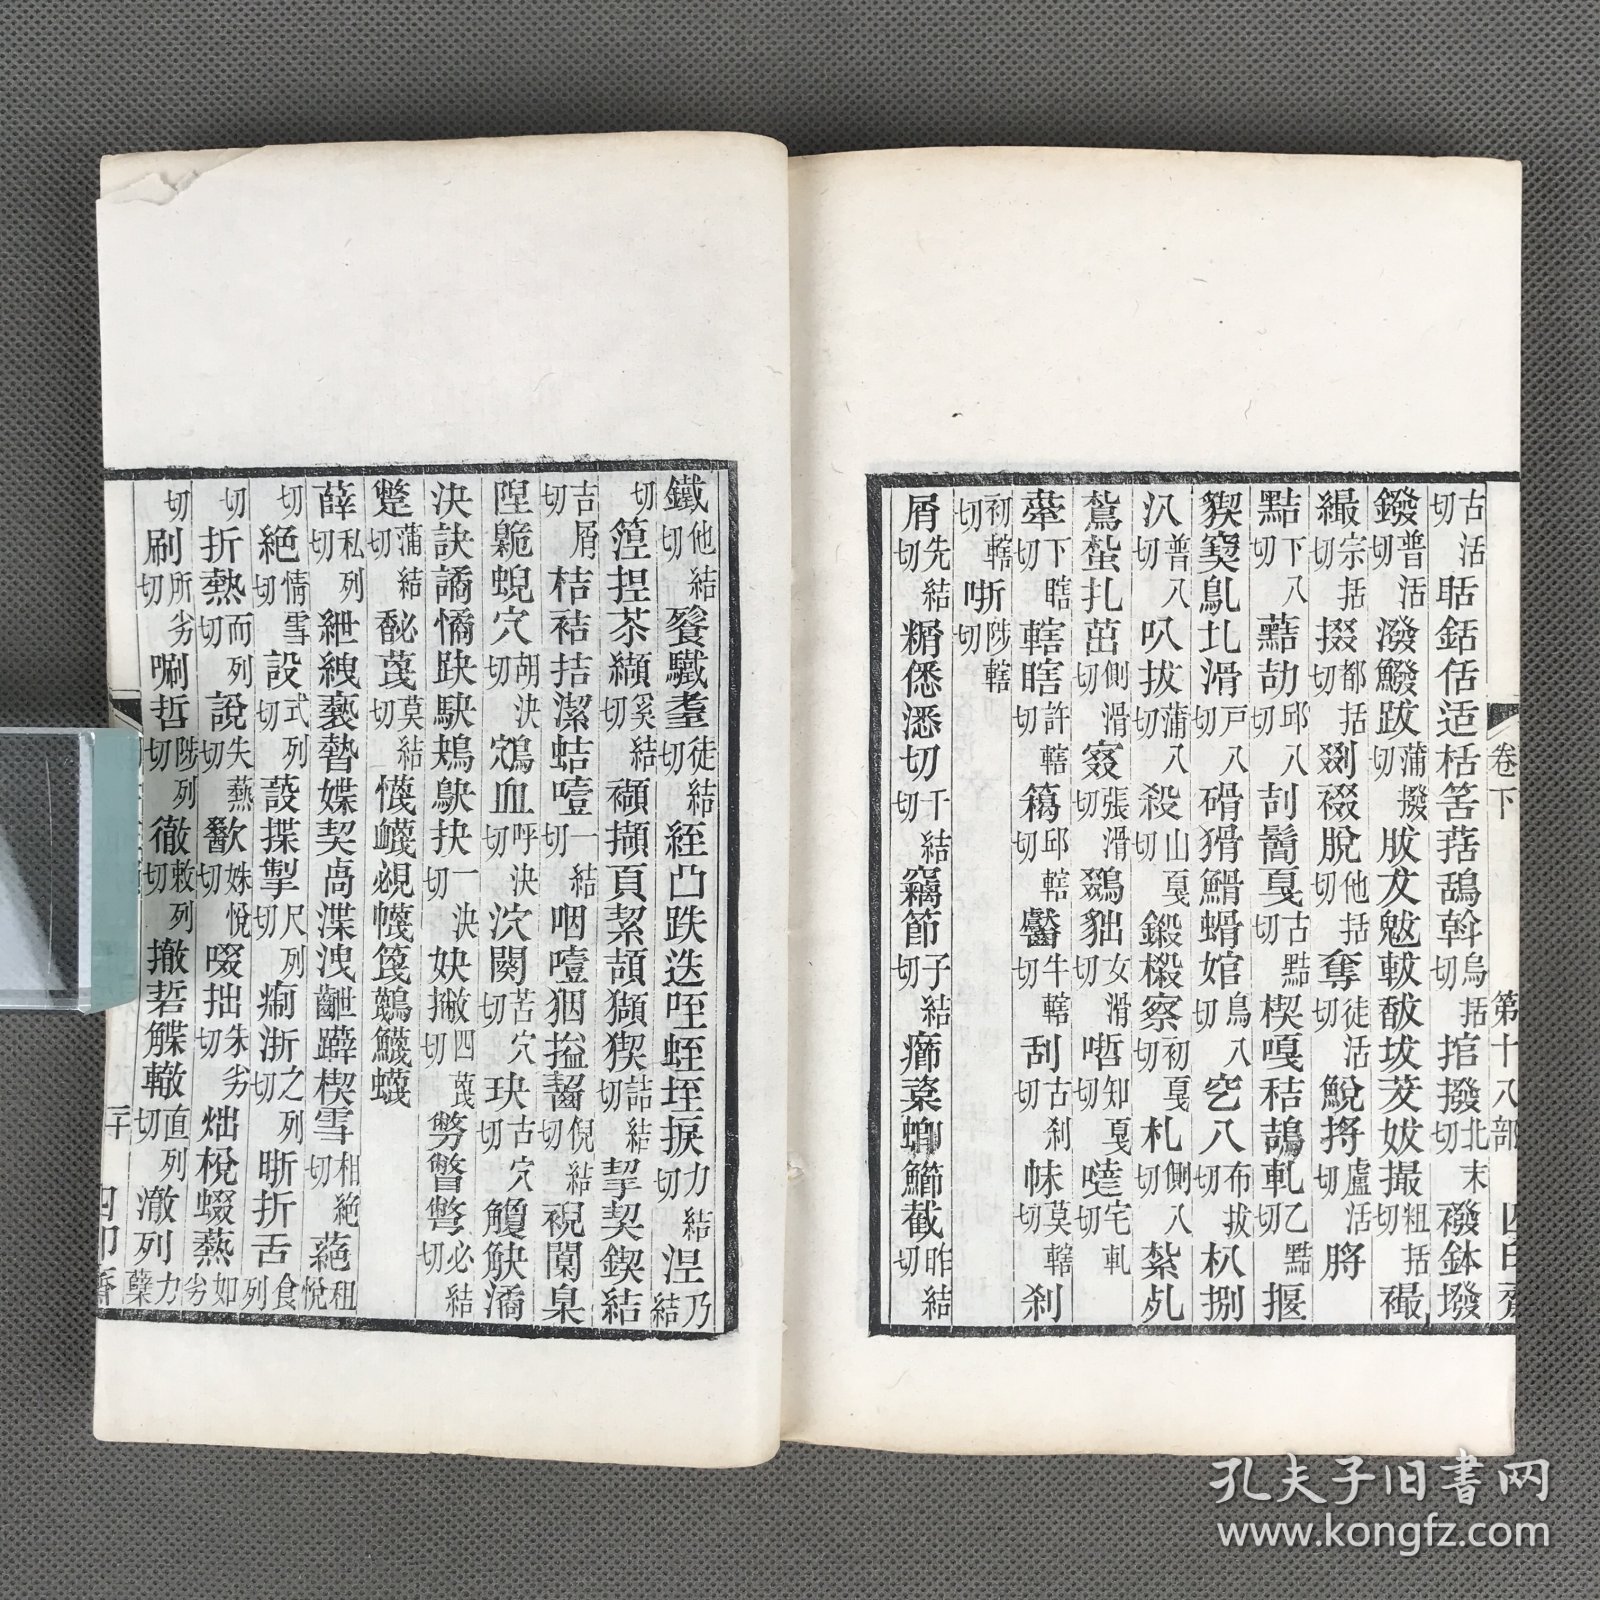 卷下 第十八部 四印齋
古活切聒銛佸适栝筈葀鴰斡烏括切捾撥北末切襏鉢墢
鏺普活切潑鱍跋蒲撥切胈犮魃軷馛坺茇妭撮粗括切襊
繓宗括切掇都括切剟裰脫他括切奪徒活切鮵捋盧活切脟
黠下八切劼邱八切刮鬜戛古黠切楔嘎秸鴶軋乙黠切揠
猰窫鳦圠滑戶八切磆猾䱻螖婠烏八切穵八布拔切朳捌
汃普八切叭拔蒲八切殺山戛切鎩樧察初戛切札側八切紮𠃵
鴷蜇扎茁側滑切窡張滑切鵽貀女滑切哳知戛切噠宅軋切
舝下瞎切轄瞎許轄切䈓邱轄切齾牛轄切刮古刹切帓莫轄切刹
初轄切哳陟轄切
屑先結切糏僁㴽切千結切竊節子結切癤楶蝍鯽截昨結切
鐵他結切餮驖耋徒結切絰凸跌迭咥蛭垤捩力結切涅乃結
切篞捏苶纈奚結切襭擷頁絜頡㩪猰詰結切挈契鍥結
吉屑切桔袺拮潔蛣噎一結切咽饐㹧搤齧倪結切䙿闑臬
隉臲蜺穴胡決切鴥血呼決切泬闋苦穴切玦古穴切觼觖潏
決訣譎憰趹駃鴂鴃抉一決切妜撇敝四蔑切㡜瞥鷩必結切
蹩蒲結切馝蔑莫結切懱衊覕幭篾鷡鱴蠛
薛私列切紲絏褻暬媟契卨渫洩齛躠楔雪相絕切蕝租悅
切絕情雪切設式列切蔎揲掣尺列切痸浙之列切晣折舌食列
切折熱而列切說失爇切歠姝悅切啜拙朱劣切炪梲蝃爇如劣
切刷所劣切唰哲陟列切徹敕列切撤硩觽轍直列切澈列力孽
二十 四印齋
孔夫子旧书网
www.kongfz.com